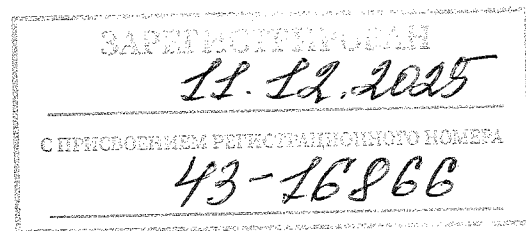 ЗАРЕГИСТРИРОВАН
11.12.2025
С ПРИСВОЕНИЕМ РЕГИСТРАЦИОННОГО НОМЕРА
43-16866